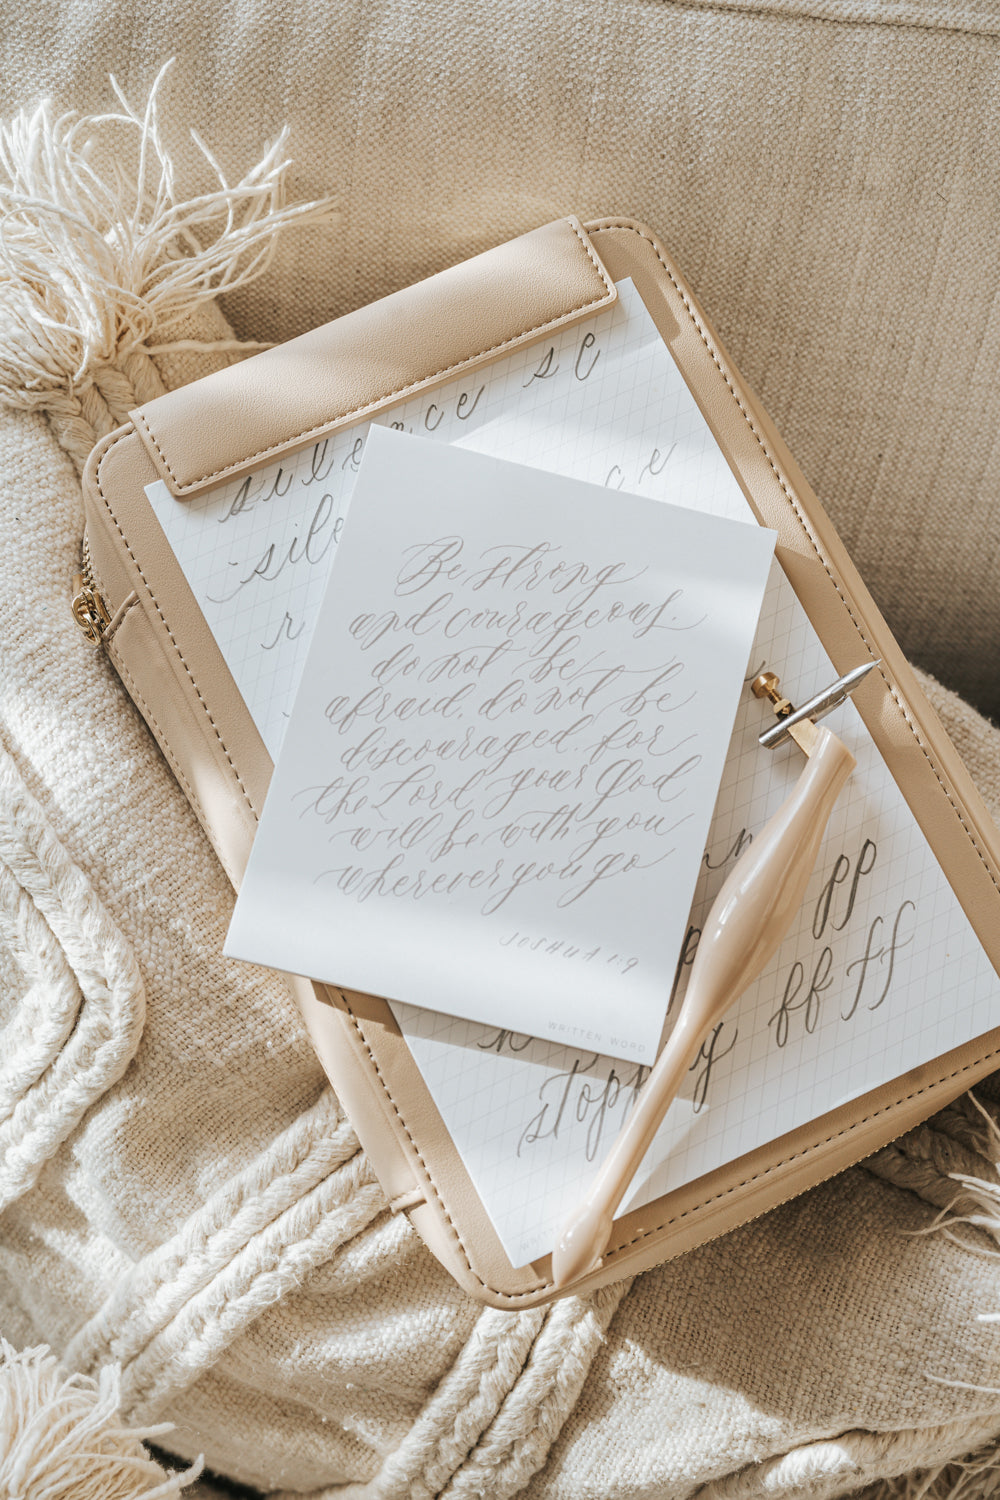 silence se
sile ce
r
Be strong
and courageous.
do not be
afraid. do not be
discouraged. for
the Lord your God
will be with you
wherever you go
JOSHUA 1:9
WRITTEN WORD
pp
ff ff